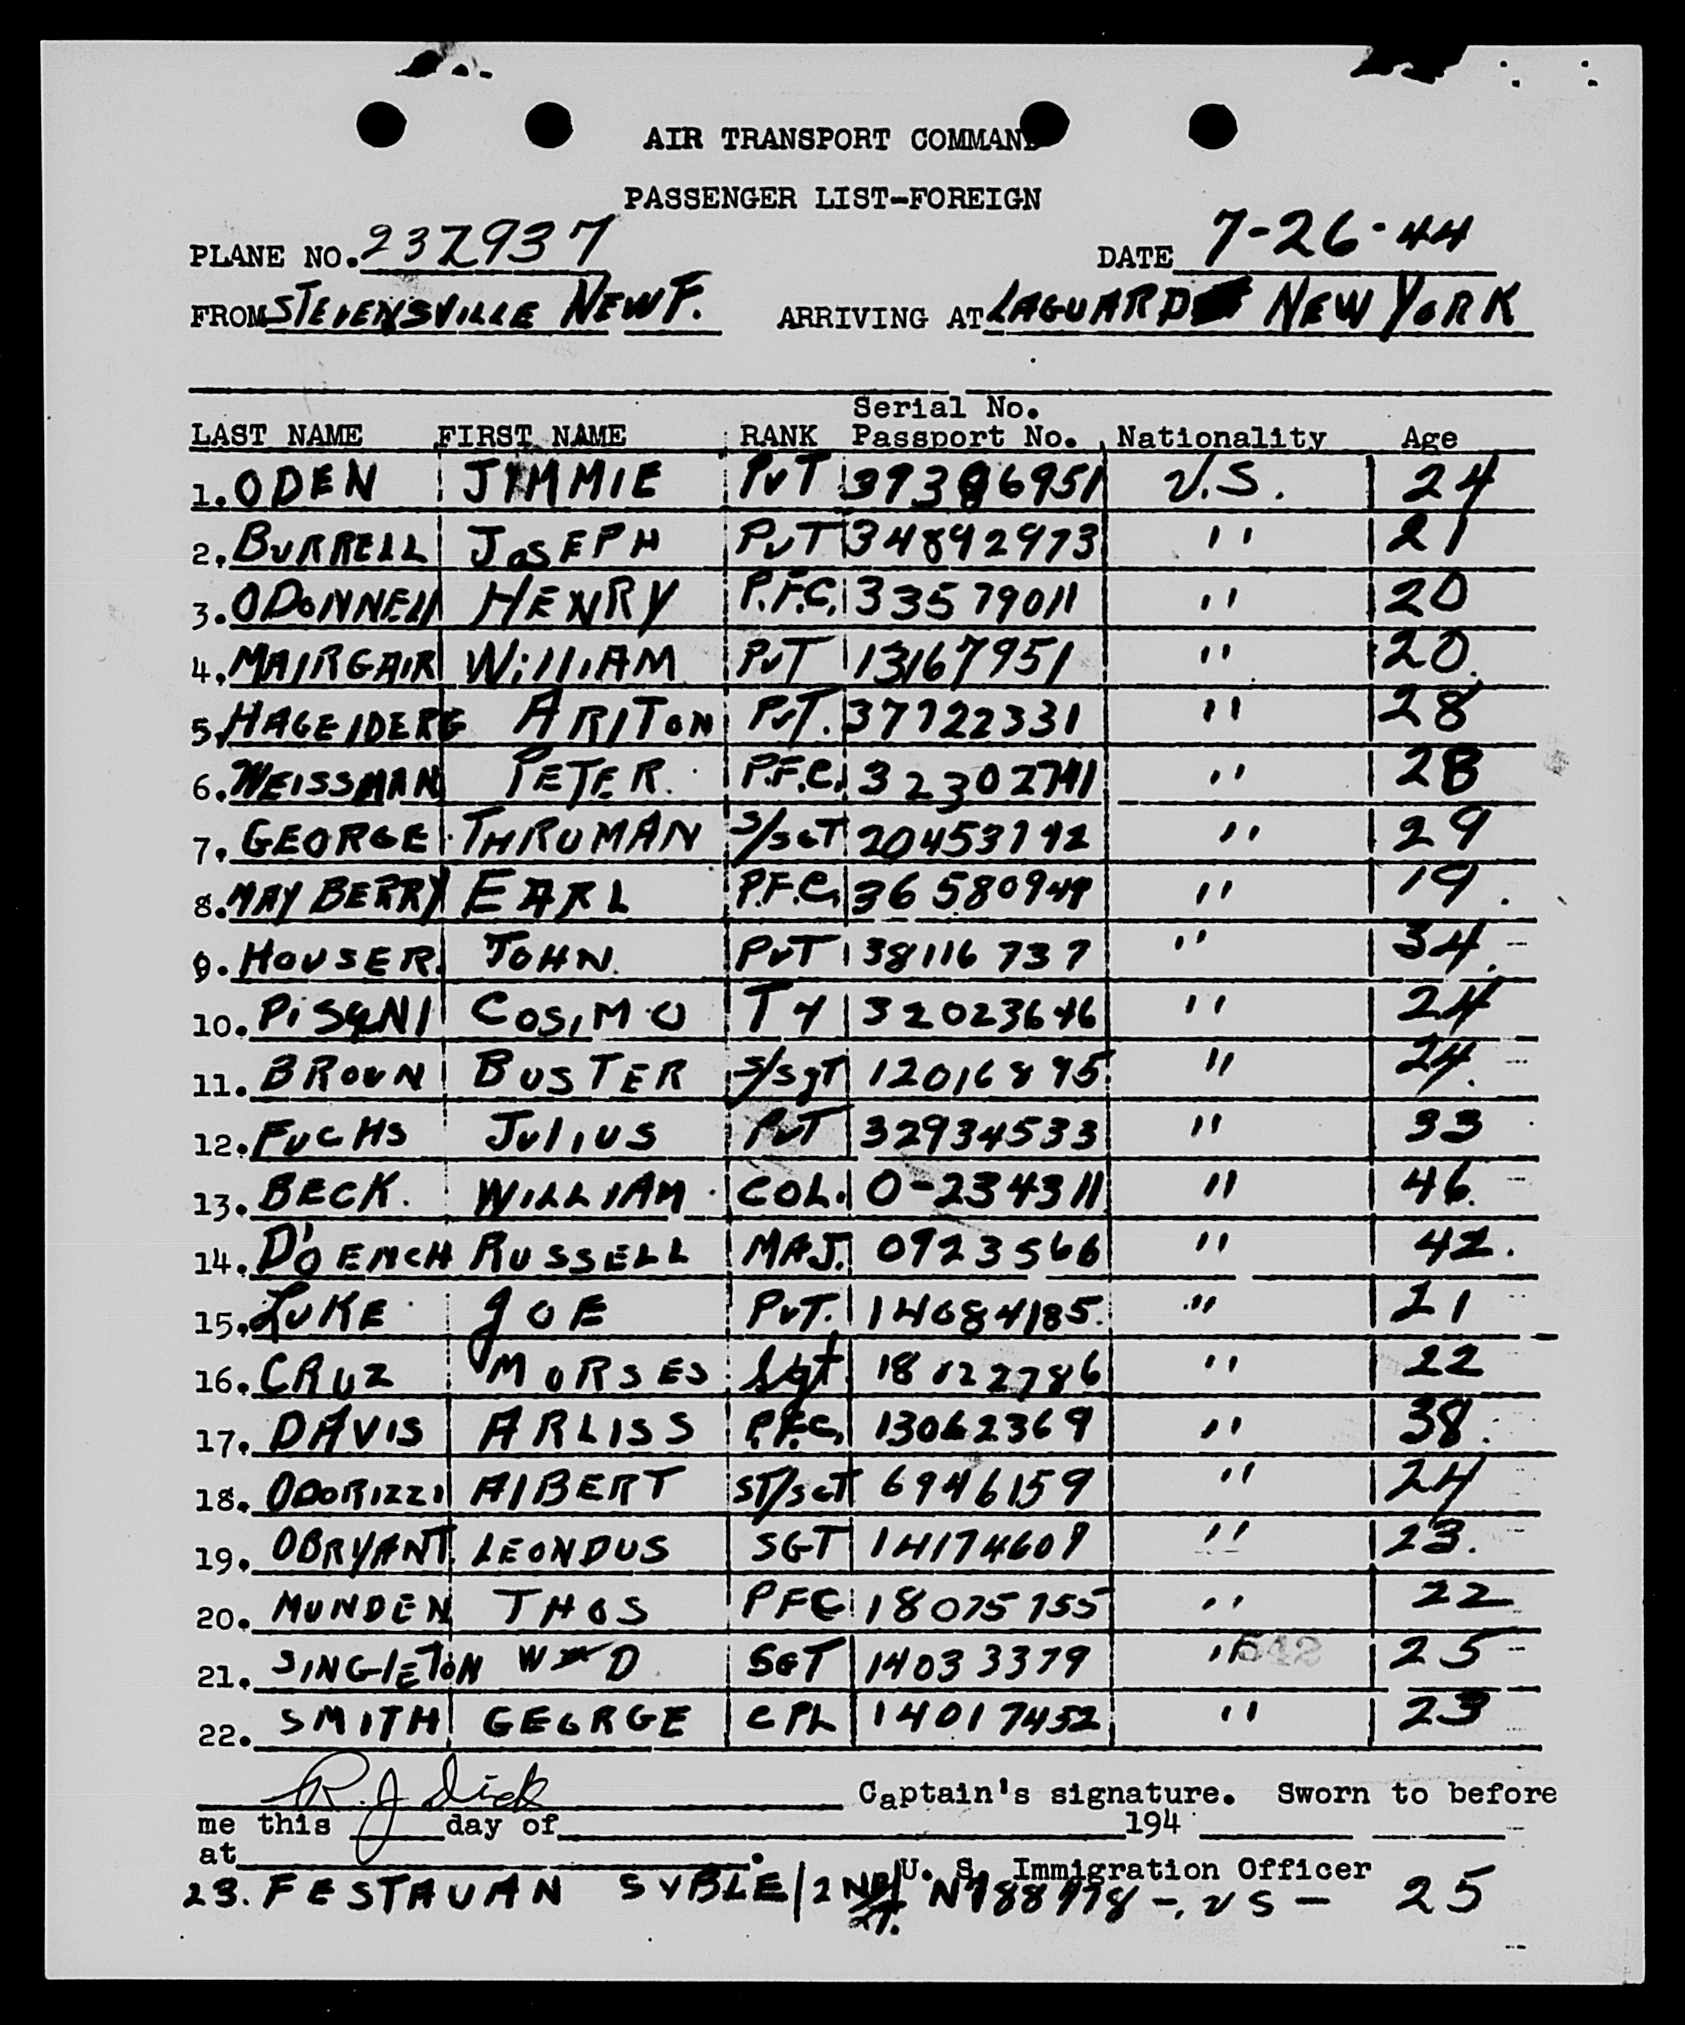 AIR TRANSPORT COMMAND
PASSENGER LIST-FOREIGN
PLANE NO. 237937 DATE 7-26-44
FROM STEVENSVILLE NEWF. ARRIVING AT LAGUARD NEW YORK
Serial No.
LAST NAME FIRST NAME RANK Passport No. Nationality Age
1. ODEN JIMMIE PVT 39396951 U.S. 24
2. BURRELL JOSEPH PVT 34892973 " 21
3. ODONNELL HENRY P.F.C. 33579011 " 20
4. MAIRGAIR WILLIAM PVT 13167951 " 20
5. HAGEIDERG ARITON PVT. 37722331 " 28
6. WEISSMAN PETER P.F.C. 32302741 " 28
7. GEORGE THRUMAN S/SGT 20453742 " 29
8. MAYBERRY EARL P.F.C. 36580949 " 19
9. HOUSER JOHN PVT 38116737 " 34
10. PISANI COSIMO T4 32023646 " 24
11. BROWN BUSTER S/SgT 12016895 " 24
12. FUCHS JULIUS PVT 32934533 " 33
13. BECK WILLIAM COL. 0-234311 " 46
14. D'OENCH RUSSELL MAJ. 0923566 " 42
15. LUKE JOE PVT. 14084185 " 21
16. CRUZ MORSES Sgt 18122786 " 22
17. DAVIS ARLISS P.F.C. 13062369 " 38
18. ODORIZZI AlBERT ST/SGT 6946159 " 24
19. OBRYANT LEONDUS SGT 14174609 " 23
20. MUNDEN THOS PFC 18075755 " 22
21. SINGLETON W D SGT 14033379 " 25
22. SMITH GEORGE CPL 14017452 " 23
R. J. Dick Captain's signature. Sworn to before
me this day of 194
at .
U. S. Immigration Officer
23. FESTAUAN SYBLE 2ND LT. N788778 - US - 25